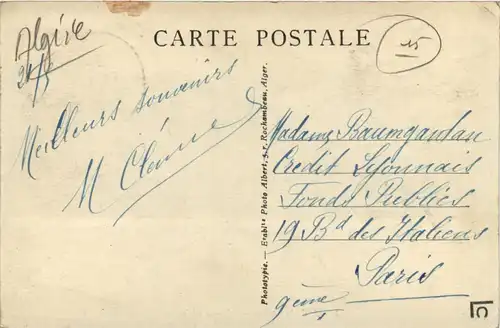 Algérie
CARTE POSTALE
15
Meilleurs souvenirs
M
Phototypie. — Etablts Photo Albert, 9, r. Rochambeau, Alger.
Madame Baumgardan
Crédit Lyonnais
Fonds Publics
19 Bd des Italiens
Paris
9ème